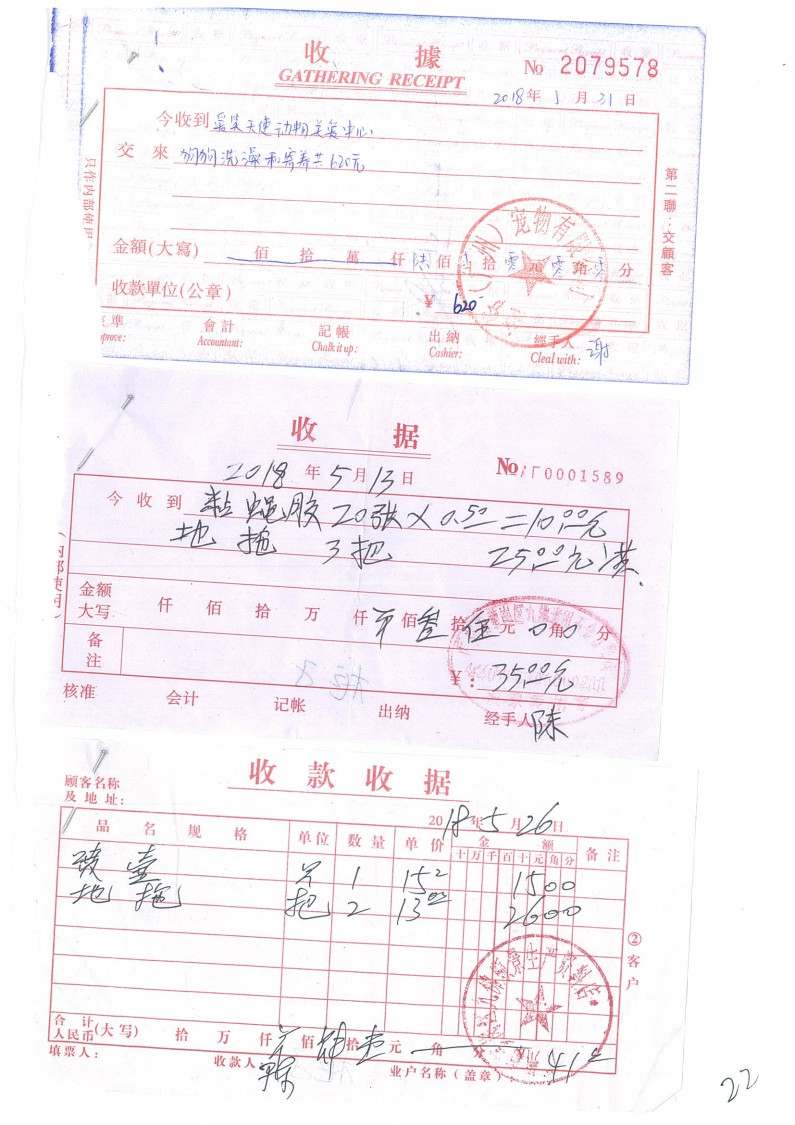 收 據
GATHERING RECEIPT
No 2079578
2018年 1 月 31 日
今收到 爱笑天使动物关爱中心
交 來 狗狗洗澡和寄养共620元
金額(大寫) 佰 拾 萬 仟 陆 佰 拾 零 元 零 角 零 分
收款單位(公章)
¥ 620
宠物有限公司
第二聯:交顧客
只作內部使用
會計
Accountant:
記帳
Chalk it up:
出納
Cashier:
經手人
Cleal with:
谢
收 据
2018 年 5 月 13 日
No 0001589
今 收 到 黏蝇胶 20张 × 0.50 = 10.00元
地拖 3把 25.00元
金额
大写 仟 佰 拾 万 仟 佰 叁 拾 伍 元 0 角 0 分
备
注
¥: 35.00元
(内部使用)
核准 会计 记帐 出纳 经手人 陈
收 款 收 据
顾客名称
及 地 址:
2018年 5 月 26 日
品 名 规 格 单位 数量 单 价 金 额 备 注
十 万 千 百 十 元 角 分
壶 1 15 1500
地拖 把 2 13.00 2600
②客户
合 计
人民币(大写) 拾 万 仟 佰 肆 拾 壹 元 角 分 ¥ 41
填票人: 收款人: 业户名称(盖章)
22